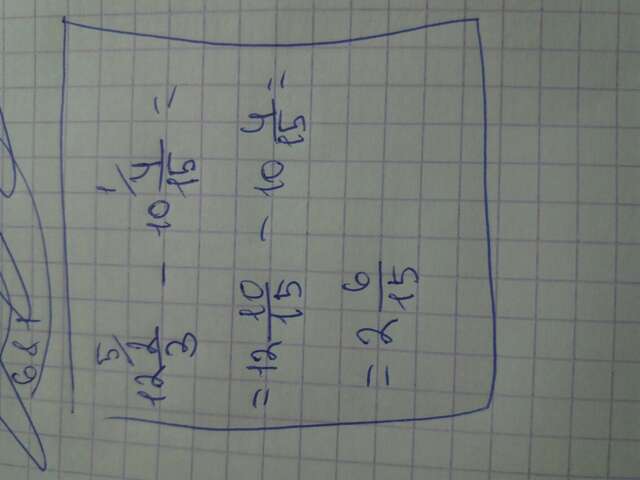 12 2/3 5/ - 10 4/15 1/ =
= 12 10/15 - 10 4/15 =
= 2 6/15